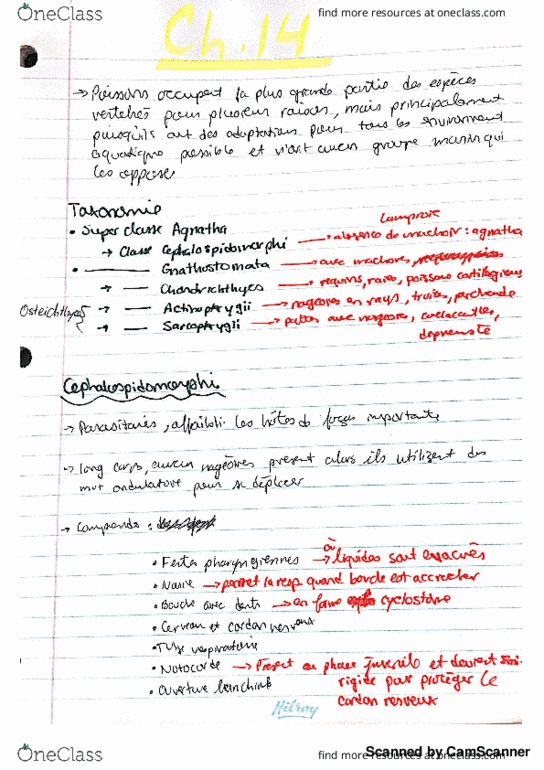 OneClass
find more resources at oneclass.com
Ch. 14
→ Poissons occupent la plus grande partie des espèces
vertébrés pour plusieur raisons, mais principalement
puisqu'ils ont des adaptations pour tous les environment
aquatique possible et n'ont aucun groupe marin qui
les oppose
Taxonomie
Lamproie
• Super classe Agnatha
→ Classe Cephalospidomorphi → absence de machoir : agnatha
• Gnathostomata → avec machoires,
→ Chondrichthyes → requins, raies, poissons cartilagineux
Osteichthyes
→ Actinoptrygii → nageoires en rays, truites, perchaude
→ Sarcoptrygii → pattes avec nageoires, coelacanthes,
dipneuste
Cephalospidomorphi
→ Parasitaires, affaibli les hôtes de façon importante
→ long corps, aucun nageoires présent alors ils utilizent des
mvt ondulatoire pour se déplacer
→ Comprends :
• Fentes pharyngiennes → à liquides sont évacués
• Narine → permet la resp. quand bouche est accrocher
• Bouche avec dents → en forme cyclostome
• Cerveau et cordon nerveux
• Tube respiratoire
• Notocorde → Présent au phase juvenile et devient
rigide pour protéger le
cordon nerveux
• Ouverture branchiale
Hilroy
OneClass
find more resources at oneclass.com
Scanned by CamScanner